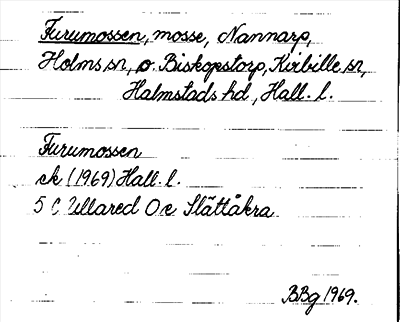 Furumossen, mosse, Nannarp,
Holms sn, o. Biskopstorp, Kvibille sn,
Halmstads hd, Hall. l.
Furumossen
ek (1969) Hall. l.
5 C Ullared Ö.e Slättåkra
BBg 1969.